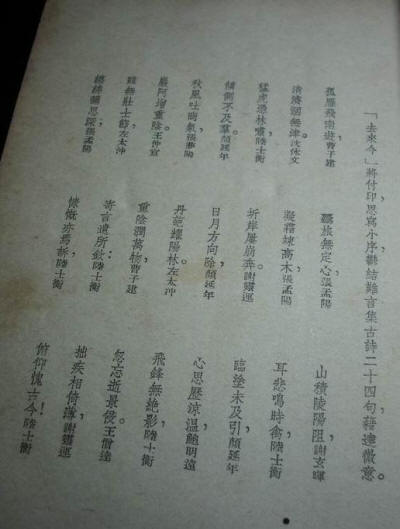 「去來今」將付印思寫小序鬱結難言集古詩二十四句藉達微意。
孤雁飛南遊，曹子建
清濟涸無津。沈休文
猛虎憑林嘯，陸士衡
傾側不及羣。顏延年
秋風吐商氣，張孟陽
巖阿增重陰。王仲宣
雖無壯士節，左太沖
纏緜彌思深。張孟陽
羈旅無定心，張孟陽
凝霜竦高木。張孟陽
圻岸屢崩奔，謝靈運
日月方向除。顏延年
丹葩耀陽林，左太沖
重陰潤萬物，曹子建
寄言遺所欽：陸士衡
慷慨亦焉訴，陸士衡
山積陵陽阻，謝玄暉
耳悲鳴時禽，陸士衡
臨塗未及引，顏延年
心思歷涼溫，鮑明遠
飛鋒無絕影，陸士衡
忽忘逝景侵，王僧達
拙疾相倚薄，謝靈運
俯仰愧古今！陸士衡